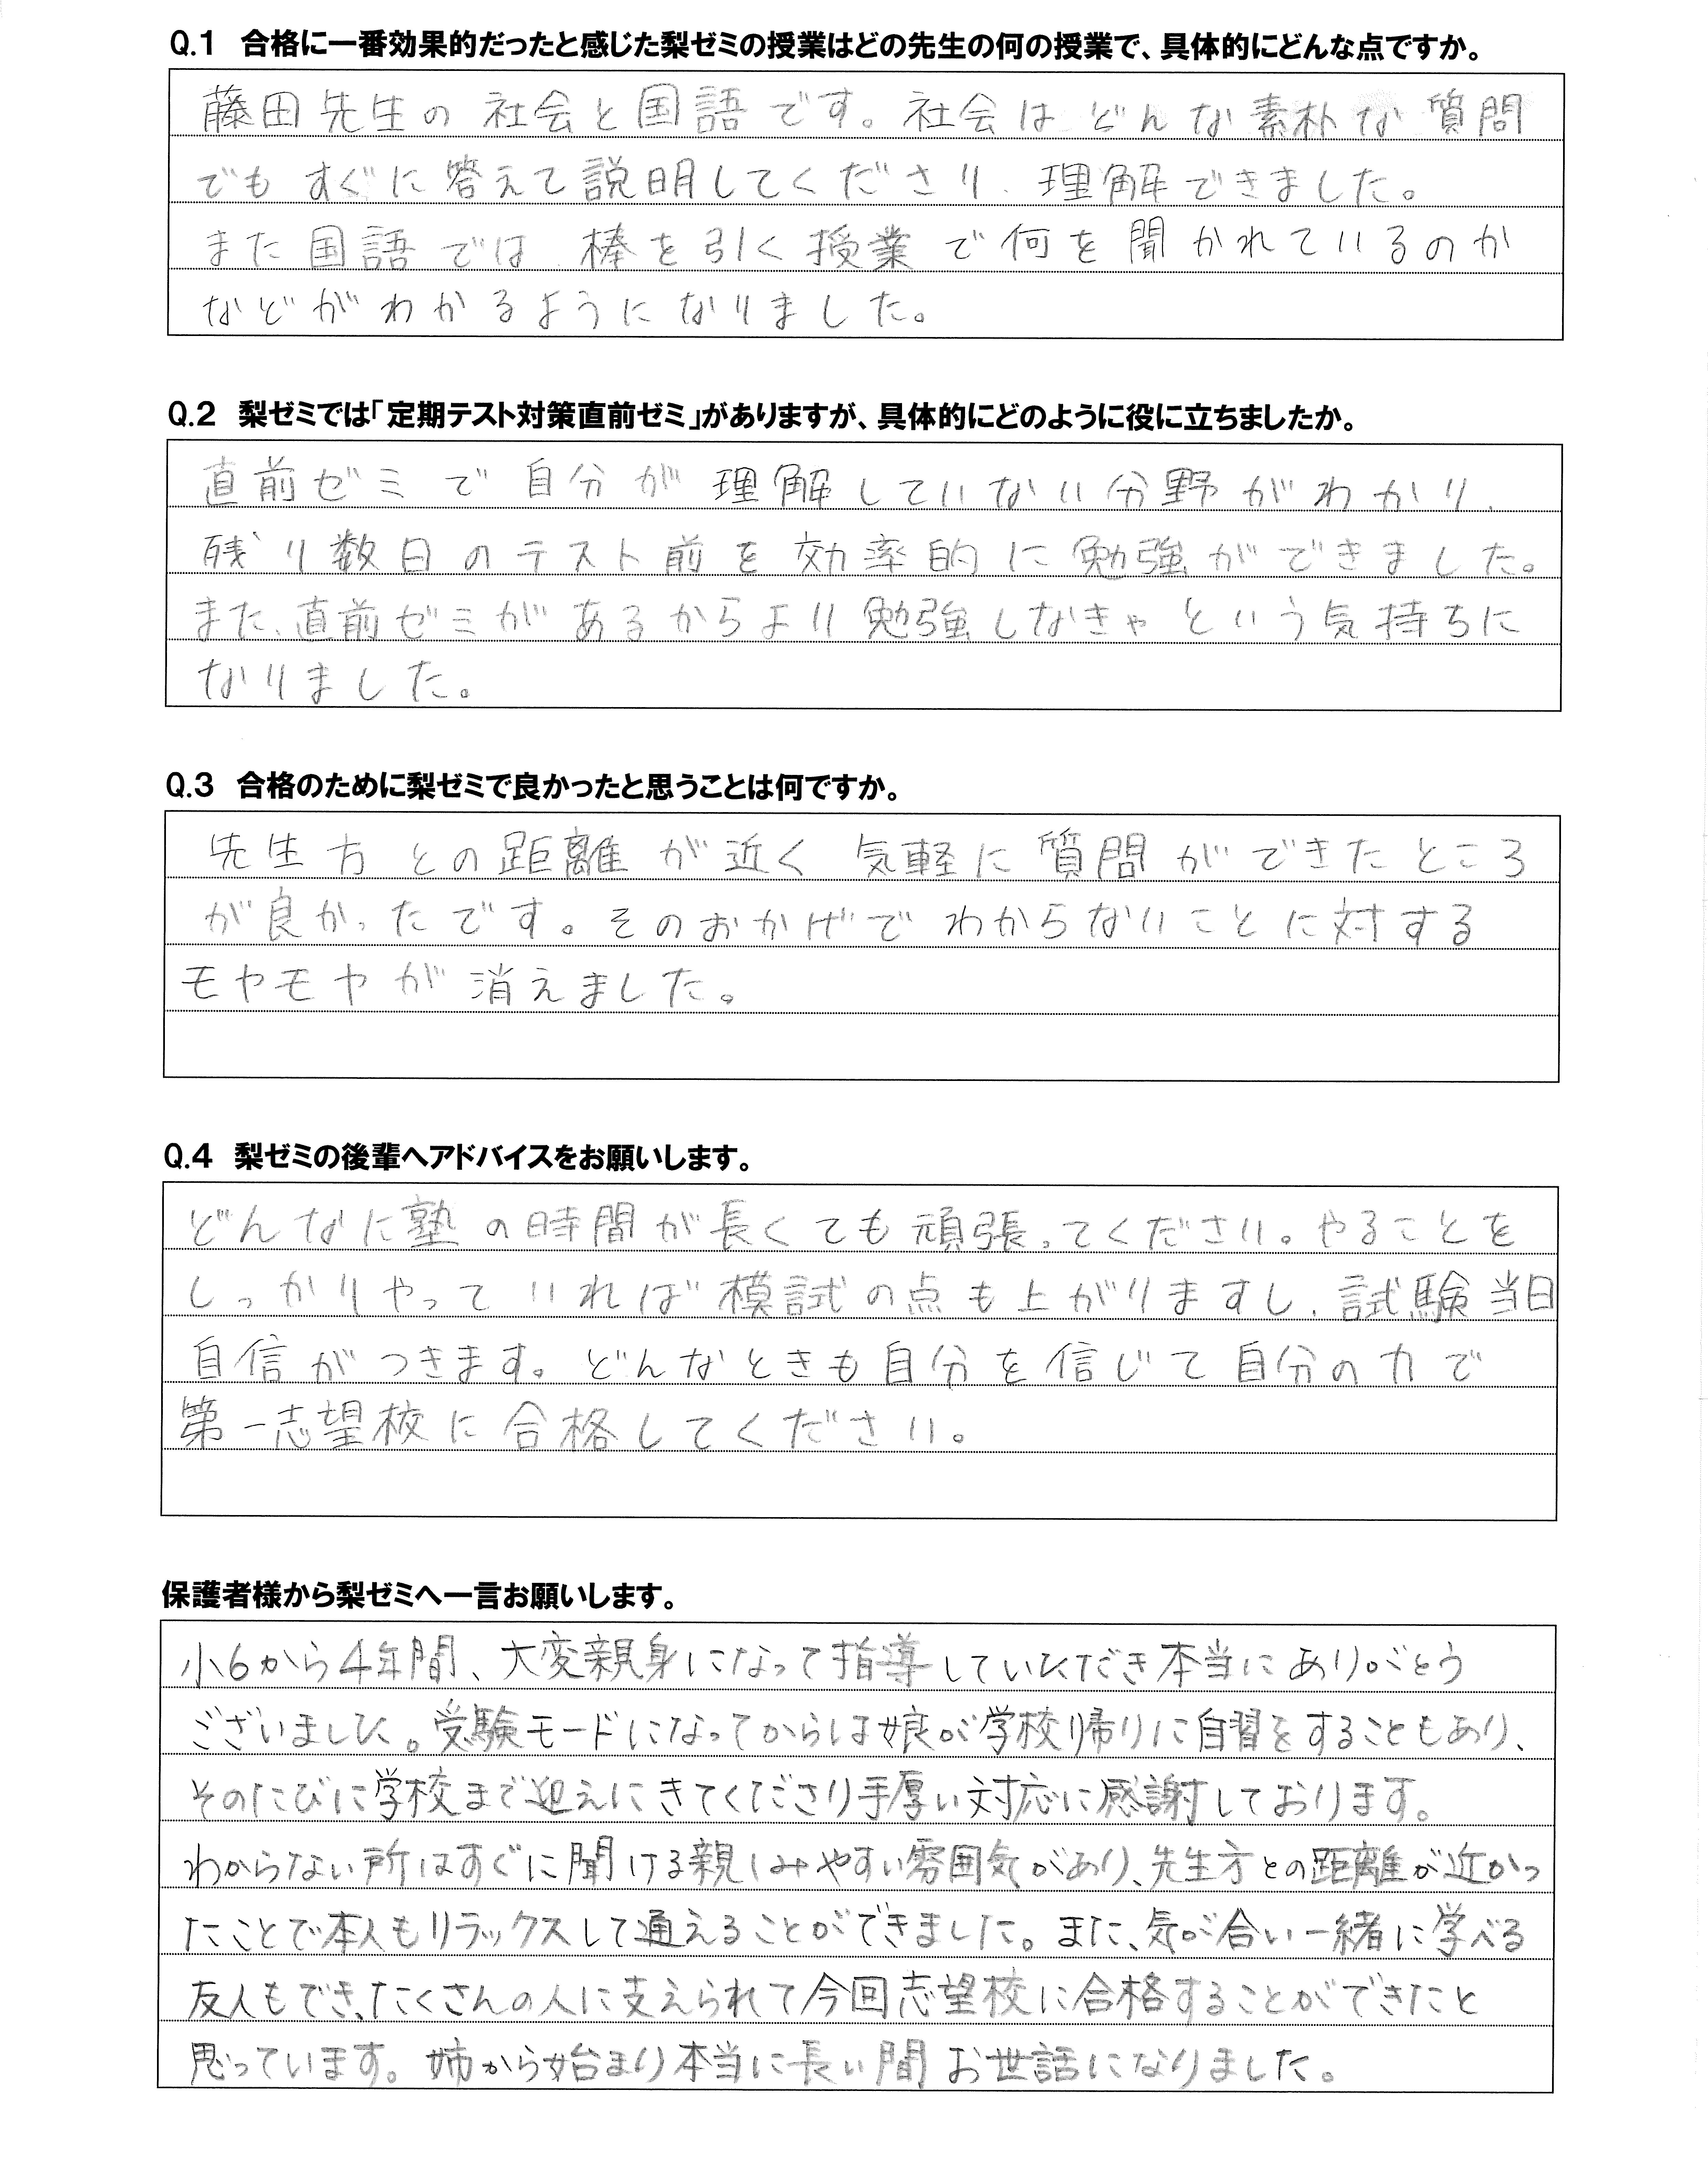 Q.1 合格に一番効果的だったと感じた梨ゼミの授業はどの先生の何の授業で、具体的にどんな点ですか。
藤田先生の社会と国語です。社会はどんな素朴な質問
でもすぐに答えて説明してくださり、理解できました。
また国語では、棒を引く授業で何を聞かれているのか
などがわかるようになりました。
Q.2 梨ゼミでは「定期テスト対策直前ゼミ」がありますが、具体的にどのように役に立ちましたか。
直前ゼミで自分が理解していない分野がわかり、
残り数日のテスト前を効率的に勉強ができました。
また、直前ゼミがあるからより勉強しなきゃという気持ちに
なりました。
Q.3 合格のために梨ゼミで良かったと思うことは何ですか。
先生方との距離が近く気軽に質問ができたところ
が良かったです。そのおかげでわからないことに対する
モヤモヤが消えました。
Q.4 梨ゼミの後輩へアドバイスをお願いします。
どんなに塾の時間が長くても頑張ってください。やることを
しっかりやっていれば模試の点も上がりますし、試験当日
自信がつきます。どんなときも自分を信じて自分の力で
第一志望校に合格してください。
保護者様から梨ゼミへ一言お願いします。
小6から4年間、大変親身になって指導していただき本当にありがとう
ございました。受験モードになってからは娘が学校帰りに自習をすることもあり、
そのたびに学校まで迎えにきてくださり手厚い対応に感謝しております。
わからない所はすぐに聞ける親しみやすい雰囲気があり、先生方との距離が近かっ
たことで本人もリラックスして通えることができました。また、気が合い一緒に学べる
友人もでき、たくさんの人に支えられて今回志望校に合格することができたと
思っています。姉から始まり本当に長い間お世話になりました。